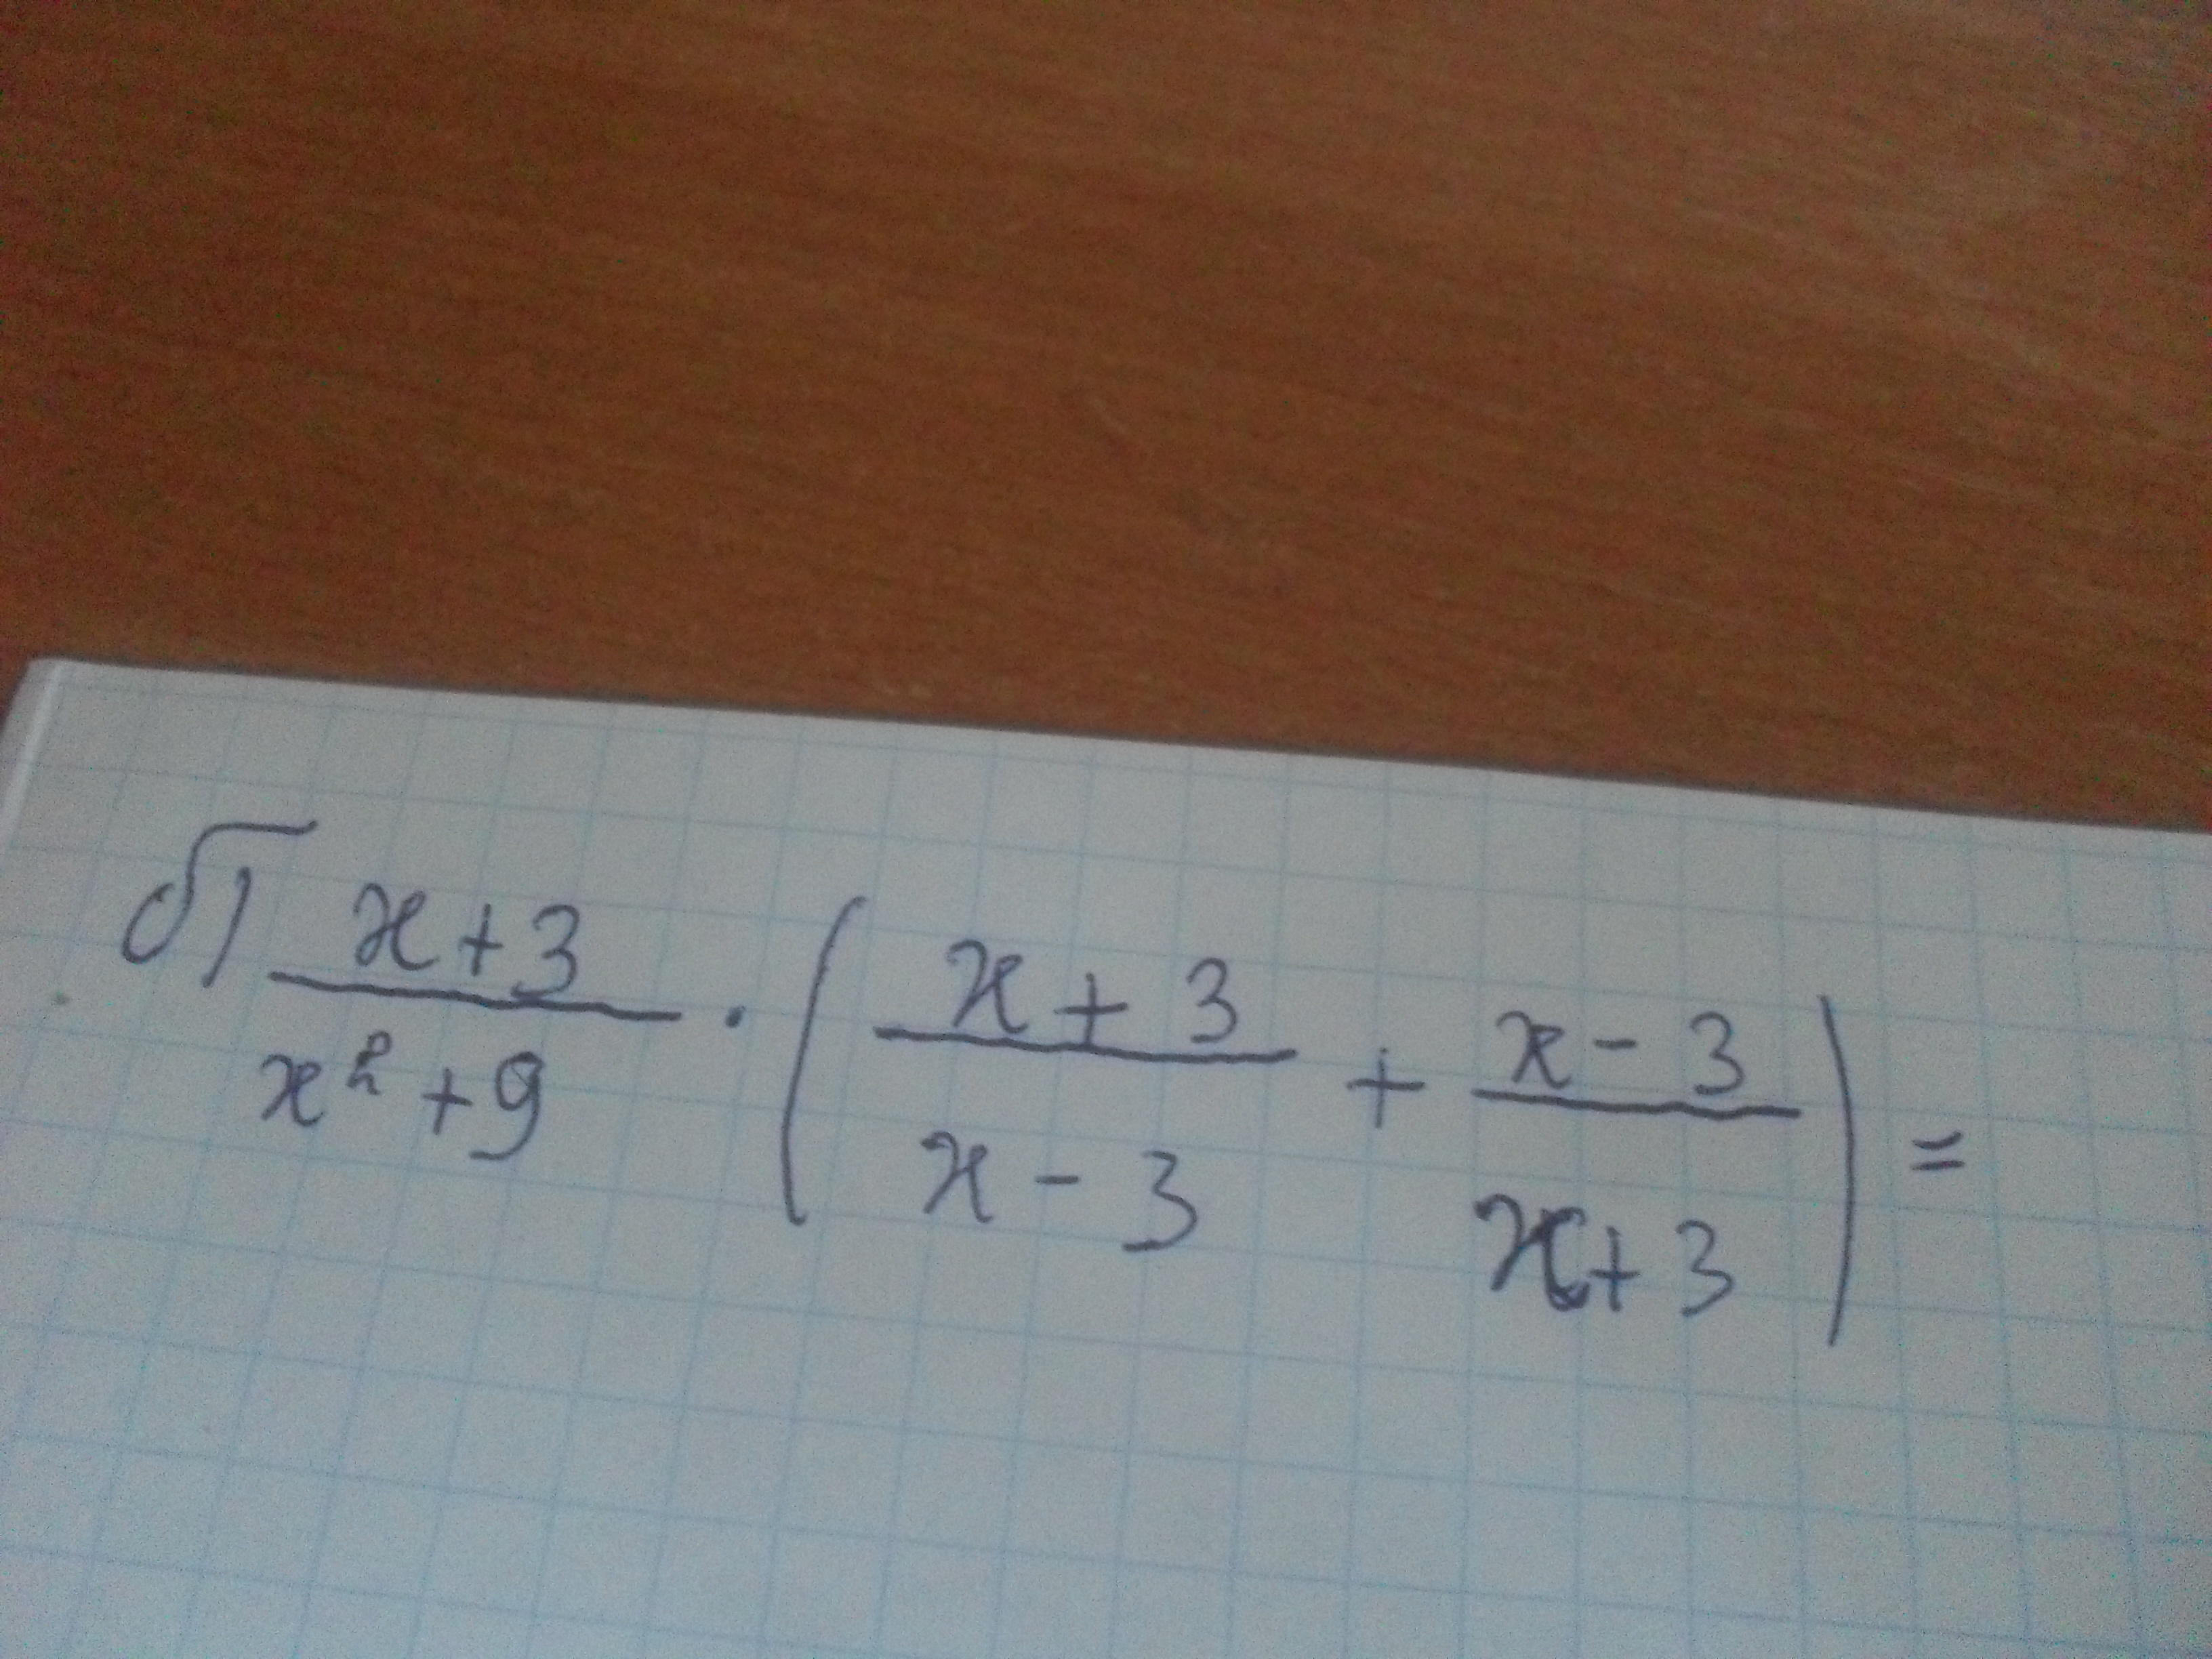 б) \frac{x+3}{x^2+9} \cdot \left( \frac{x+3}{x-3} + \frac{x-3}{x+3} \right) =